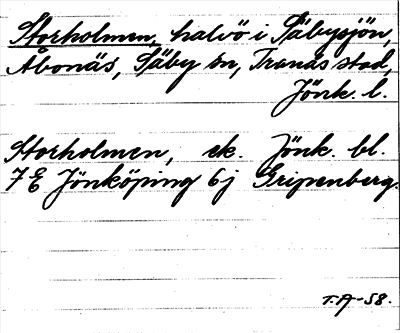 Storholmen, halvö i Säbysjön,
Åbonäs, Säby sn, Tranås stad,
Jönk. l.
Storholmen, ek. Jönk. bl.
7 E Jönköping 6j Gripenberg.
T.A-58.